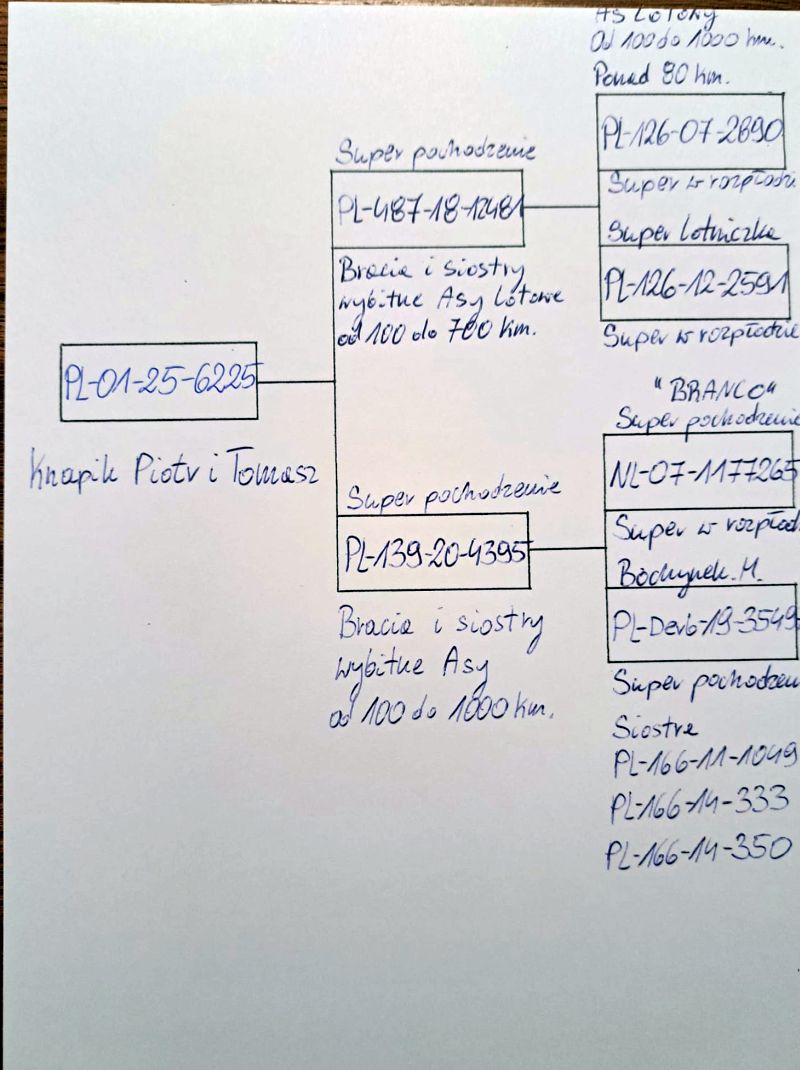 As Lotowy
Od 100 do 1000 km.
Ponad 80 km.
PL-126-07-2890
Super w rozpłodzi
Super Lotniczka
PL-126-12-2591
Super w rozpłodzie
Super pochodzenie
PL-487-18-12481
Bracia i siostry
wybitne Asy Lotowe
od 100 do 700 km.
PL-01-25-6225
Knapik Piotr i Tomasz
"BRANCO"
Super pochodzenie
NL-07-1177265
Super w rozpłod
Bochynek. M.
PL-Derb-19-3549
Super pochodzen
Siostra
PL-166-11-1049
PL-166-14-333
PL-166-14-350
Super pochodzenie
PL-139-20-4395
Bracia i siostry
wybitne Asy
od 100 do 1000 km.